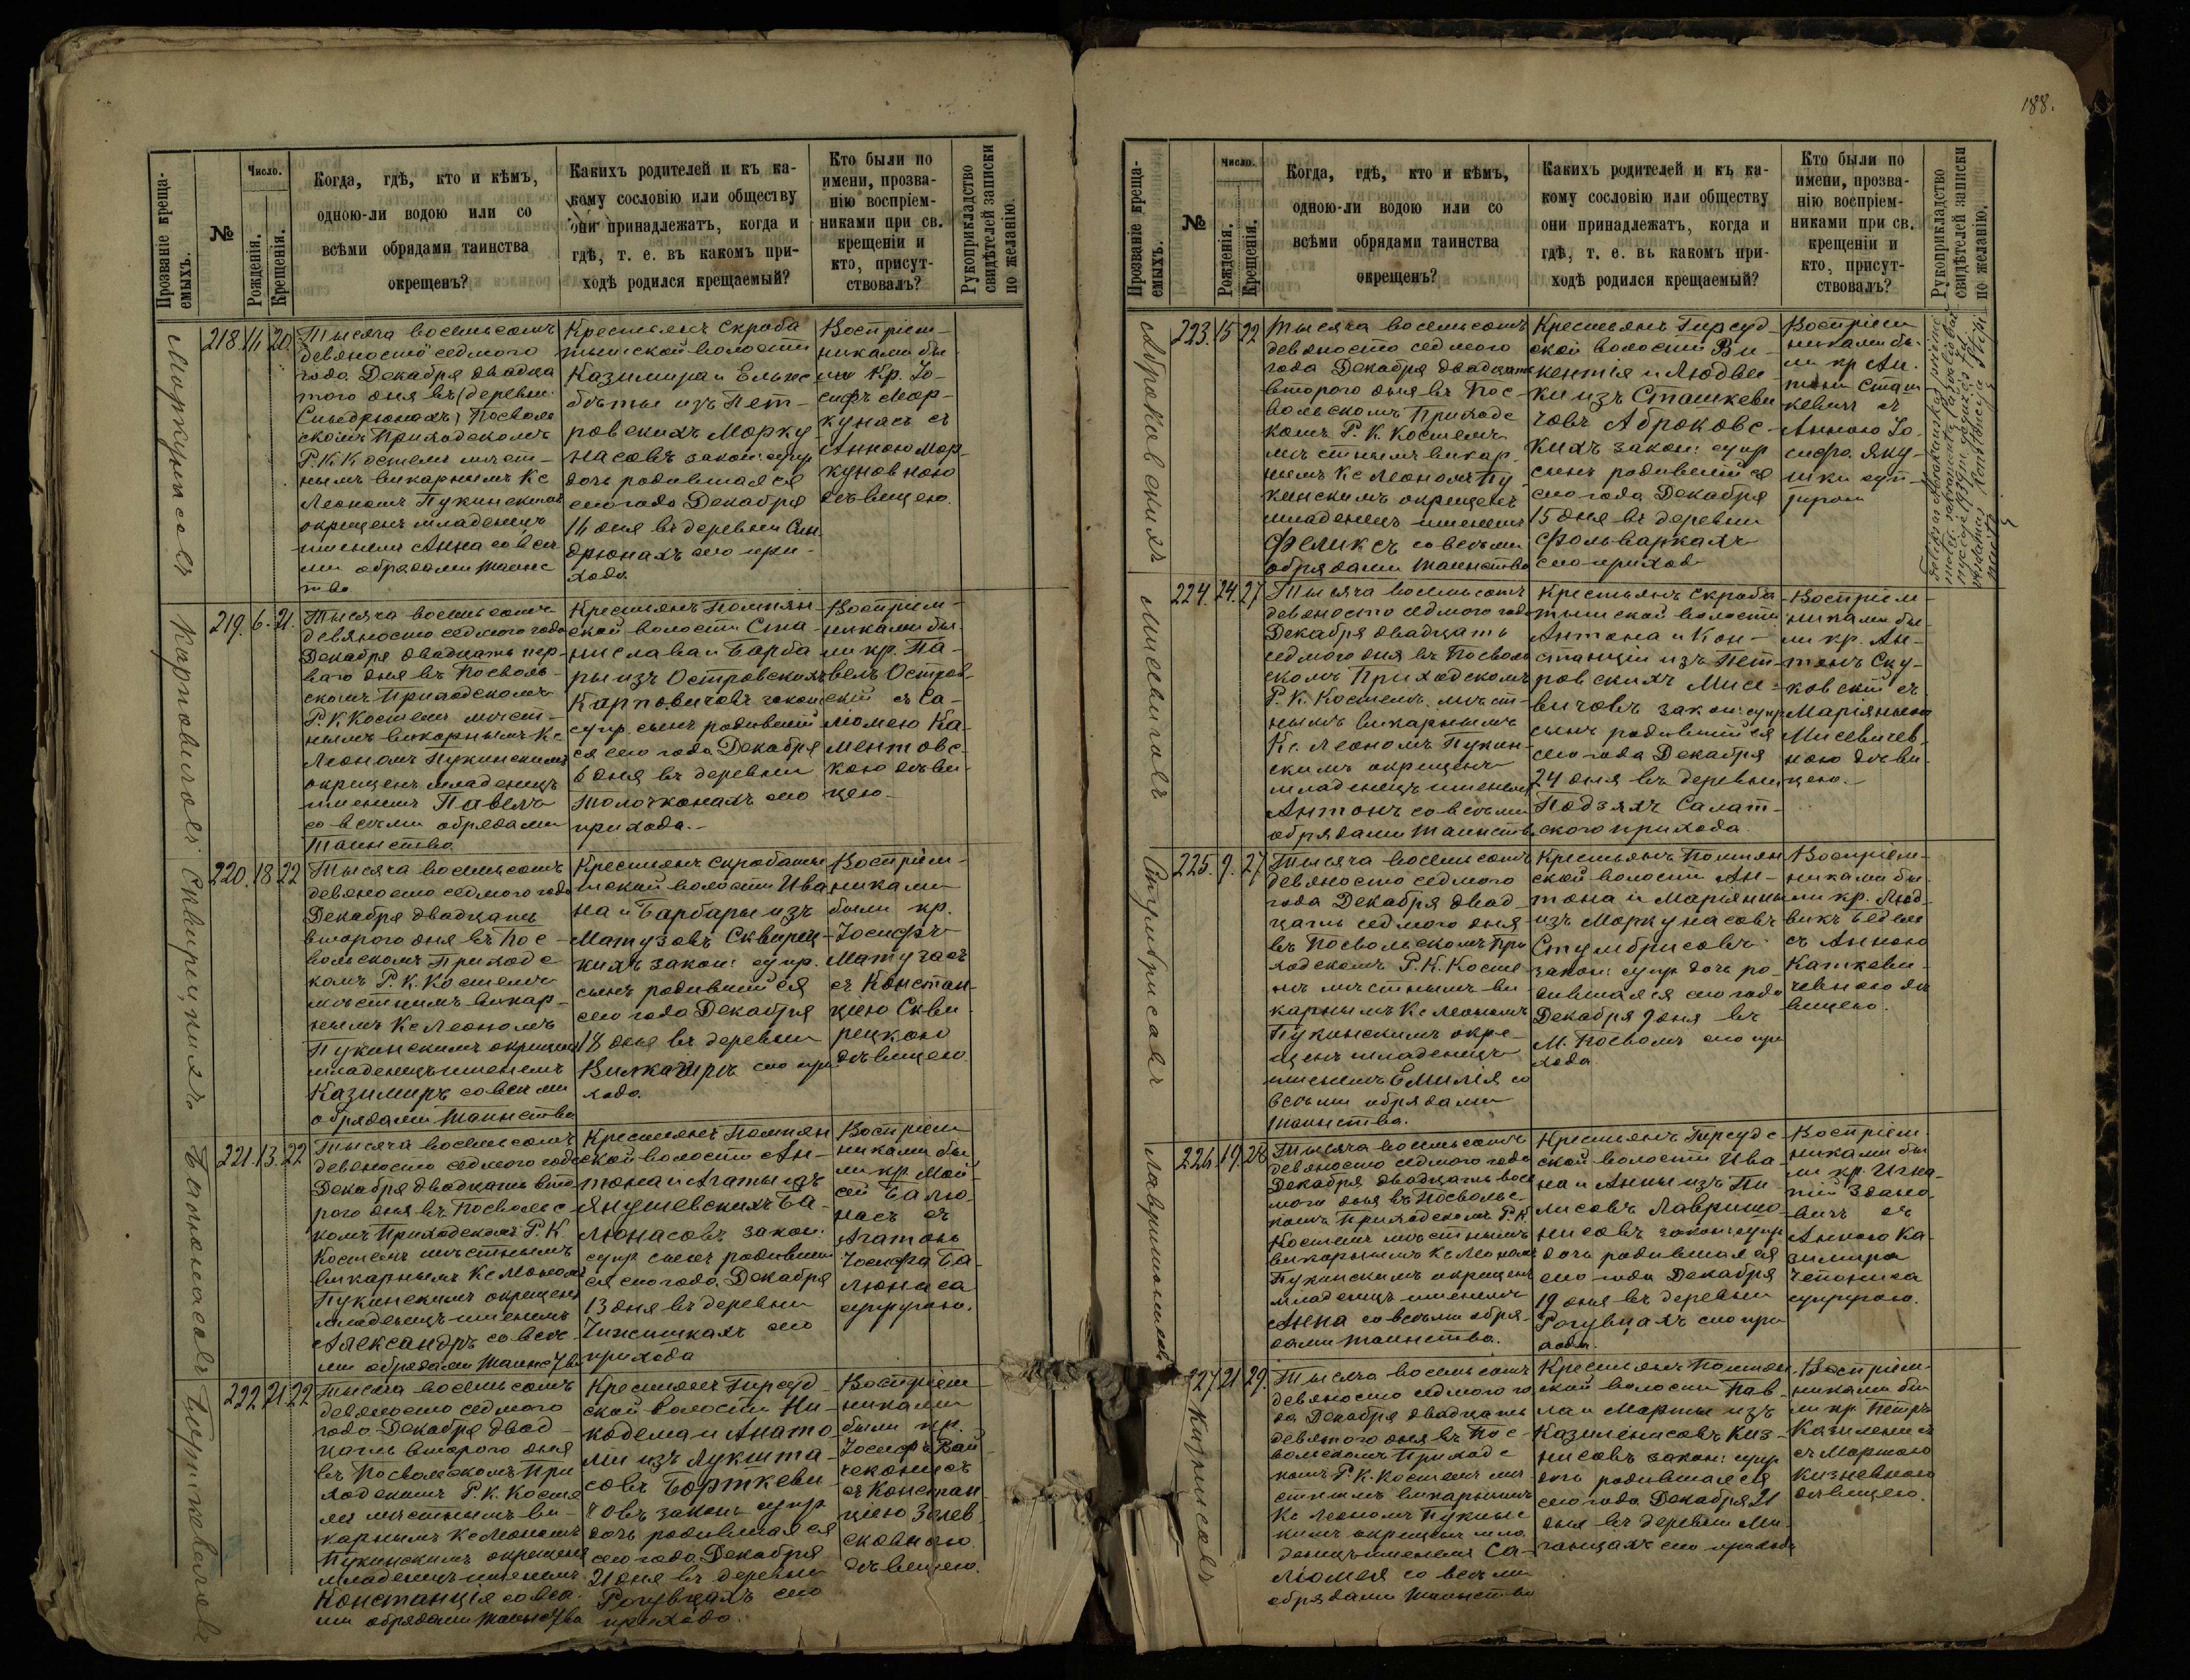 188.
Прозваніе креща-
емыхъ.
№
Число.
Рожденія.
Крещенія.
Когда, гдѣ, кто и кѣмъ,
одною-ли водою или со
всѣми обрядами таинства
окрещенъ?
Какихъ родителей и къ ка-
кому сословію или обществу
они принадлежатъ, когда и
гдѣ, т. е. въ какомъ при-
ходѣ родился крещаемый?
Кто были по
имени, прозва-
нію воспріем-
никами при св.
крещеніи и
кто, присут-
ствовалъ?
Рукоприкладство
свидѣтелей записки
по желанію.
Моркунасовъ
218.
11
20.
Тысяча восемьсотъ
девяносто седмого
года Декабря двадца
того дня въ (деревни
Синдрюнахъ) Посволь
скомъ Приходскомъ
Р. К. Костелѣ мѣст-
нымъ викарнымъ Кс
Леономъ Пукинскимъ
окрещенъ младенецъ
именемъ Анна со всѣ
ми обрядами таинс
тва
Крестьянъ Скроба
тишской волости
Казимира и Ельжс
бѣты изъ Пет-
ровскихъ Морку
насовъ закон: супр
дочь родившаяся
сего года Декабря
11 дня въ деревни Син
дрюнахъ сего при-
хода
Воспріем-
никами бы
ли Кр. Іо-
сифъ Мор-
кунасъ съ
Анною Мор-
куновною
дѣвицею.
Карповичовъ
219.
6.
21.
Тысяча восемьсотъ
девяносто седмого года
Декабря двадцать пер-
ваго дня въ Посволь-
скомъ Приходскомъ
Р. К. Костелѣ мѣст-
нымъ викарнымъ Кс
Леономъ Пукинскимъ
окрещенъ младенецъ
именемъ Павелъ
со всѣми обрядами
таинства
Крестьянъ Помпян
ской волости Ста-
нислава и Барба
ры изъ Островскихъ
Карповичовъ закон
супр. сынъ родивший
ся сего года Декабря
6 дня въ деревни
Толочконахъ сего
прихода.-
Воспріем-
никами бы-
ли кр. Па-
велъ Остров-
скій съ Са-
ломею Ка-
ментовс-
кою дѣви-
цею-
Сквирецкихъ
220.
18
22
Тысяча восемьсотъ
девяносто седмого года
Декабря двадцать
второго дня въ Пос-
вольскомъ Приходс
комъ Р. К. Костелѣ
мѣстнымъ викар-
нымъ Кс Леономъ
Пукинскимъ окрещенъ
младенецъ именемъ
Казимиръ со всѣми
обрядами таинства
Крестьянъ Скробаты
шской волости Ива
на и Барбары изъ
Матузовъ Сквирец-
кихъ закон: супр.
сынъ родившийся
сего года Декабря
18 дня въ деревни
сего при
хода.
Воспріем-
никами
были кр.
Іосифъ
Матузасъ
съ Констан-
ціею Скви-
рецкою
дѣвицею.
Балюнасовъ
221.
13.
22
Тысяча восемьсотъ
девяносто седмого года
Декабря двадцать вто
рого дня въ Посвольс-
комъ Приходскомъ Р. К.
Костелѣ мѣстнымъ
викарнымъ Кс Леономъ
Пукинскимъ окрещенъ
младенецъ именемъ
Александръ со всѣ-
ми обрядами таинства
Крестьянъ Помпян
ской волости Ан-
тона и Агаты изъ
Янушевскихъ Ба-
люнасовъ закон:
супр. сынъ родивший
ся сего года Декабря
13 дня въ деревни
сего
прихода
Воспріем
никами бы
ли кр. Мой-
сей Балю-
насъ съ
Агатою
Іосифа Ба-
люнаса
супругою.
Борткевичовъ
222
21
22
Тысяча восемьсотъ
девяносто седмого
года Декабря двад-
цать второго дня
въ Посвольскомъ При
ходскомъ Р. К. Косте
лѣ мѣстнымъ ви-
карнымъ Кс Леономъ
Пукинскимъ окрещенъ
младенецъ именемъ
Констанція со всѣ-
ми обрядами таинства
Крестьянъ Гирсуд-
ской волости Ни-
кодема и Анато-
ліи изъ Лукшта-
совъ Борткеви-
човъ закон: супр
дочь родившаяся
сего года Декабря
21 дня въ деревни
Рогувцахъ сего
прихода.
Воспріем
никами
были кр.
Іосифъ Вай-
чеконисъ
съ Констан-
ціею
дѣвицею.
Прозваніе креща-
емыхъ.
№
Число.
Рожденія.
Крещенія.
Когда, гдѣ, кто и кѣмъ,
одною-ли водою или со
всѣми обрядами таинства
окрещенъ?
Какихъ родителей и къ ка-
кому сословію или обществу
они принадлежатъ, когда и
гдѣ, т. е. въ какомъ при-
ходѣ родился крещаемый?
Кто были по
имени, прозва-
нію воспріем-
никами при св.
крещеніи и
кто, присут-
ствовалъ?
Рукоприкладство
свидѣтелей записки
по желанію.
Аброковскихъ
223.
15
22
Тысяча восемьсотъ
девяносто седмого
года Декабря двадцать
второго дня въ Пос-
вольскомъ Приходс
комъ Р. К. Костелѣ
мѣстнымъ викар-
нымъ Кс Леономъ Пу-
кинскимъ окрещенъ
младенецъ именемъ
Феликсъ со всѣми
обрядами таинства
Крестьянъ Гирсуд-
ской волости Ви-
кентія и Людви-
ки изъ Сташкеви
човъ Аброковс-
кихъ закон: супр
сынъ родившийся
сего года Декабря
15 дня въ деревни
Фольваркахъ
сего приход
Воспріем
никами бы-
ли кр Ан-
тони Сташ
кевичъ съ
Анною Іо-
сифа Яку-
шки суп-
ругою
Мисевичовъ
224.
24.
27
Тысяча восемьсотъ
девяносто седмого года
Декабря двадцать
седмого дня въ Посволь
скомъ Приходскомъ
Р. К. Костелѣ мѣст-
нымъ викарнымъ
Кс. Леономъ Пукин-
скимъ окрещенъ
младенецъ именемъ
Антонъ со всѣми
обрядами таинств.
Крестьянъ Скроба-
тишской волости
Антона и Кон-
станціи изъ Пет-
ровскихъ Мисе-
вичовъ закон: супр
сынъ родившийся
сего года Декабря
24 дня въ деревни
Подзяхъ Салат-
ского прихода.
Воспріем-
никами бы-
ли кр. Ан-
тонъ Ску-
ковскій съ
Маріянною
Мисевичев-
ною дѣви-
цею.-
Стумбрисовъ
225.
9.
27
Тысяча восемьсотъ
девяносто седмого
года Декабря двад-
цать седмого дня
въ Посвольскомъ При
ходскомъ Р. К. Косте
лѣ мѣстнымъ ви-
карнымъ Кс Леономъ
Пукинскимъ окре-
щенъ младенецъ
именемъ Емилія со
всѣми обрядами
таинства.
Крестьянъ Помпян
ской волости Ан-
тона и Маріянны
изъ Моркунасовъ
Стумбрисовъ
закон: супр дочь ро-
дившаяся сего года
Декабря 9 дня въ
М. Посволѣ сего при
хода
Воспріем-
никами бы-
ли кр. Люд-
викъ
съ Анною
Каткеви-
чевною дѣ
вицею.
226.
19.
28
Тысяча восемьсотъ
девяносто седмого года
Декабря двадцать вось
мого дня въ Посвольс-
комъ Приходскомъ Р. К.
Костелѣ мѣстнымъ
викарнымъ Кс Леономъ
Пукинскимъ окрещенъ
младенецъ именемъ
Анна со всѣми обря-
дами таинства.
Крестьянъ Гирсудс
ской волости Ива-
на и Анны изъ Пи-
лисовъ Лавришо-
нисовъ закон: супр
дочь родившаяся
сего года Декабря
19 дня въ деревни
Рогувцахъ сего при
хода.
Воспріем.
никами бы
ли кр. Игна-
тій Здано-
вичъ съ
Анною Ка-
зимира
Чепониса
супругою.
Кизнисовъ
227
21
29.
Тысяча восемьсотъ
девяносто седмого го
да Декабря двадцать
девятого дня въ Пос-
вольскомъ Приходс
комъ Р. К. Костелѣ мѣ
стнымъ викарнымъ
Кс Леономъ Пукинс
кимъ окрещенъ мла
денецъ именемъ Са-
ломея со всѣми
обрядами таинства
Крестьянъ Помпян
ской волости Пав-
ла и Марты изъ
Казиленисовъ Киз-
нисовъ закон: супр
дочь родившаяся
сего года Декабря 21
дня въ деревни Ми-
ганцахъ сего прихода
Воспріем-
никами бы
ли кр. Петръ
Казиленисъ
съ Мартою
Кизневною
дѣвицею.